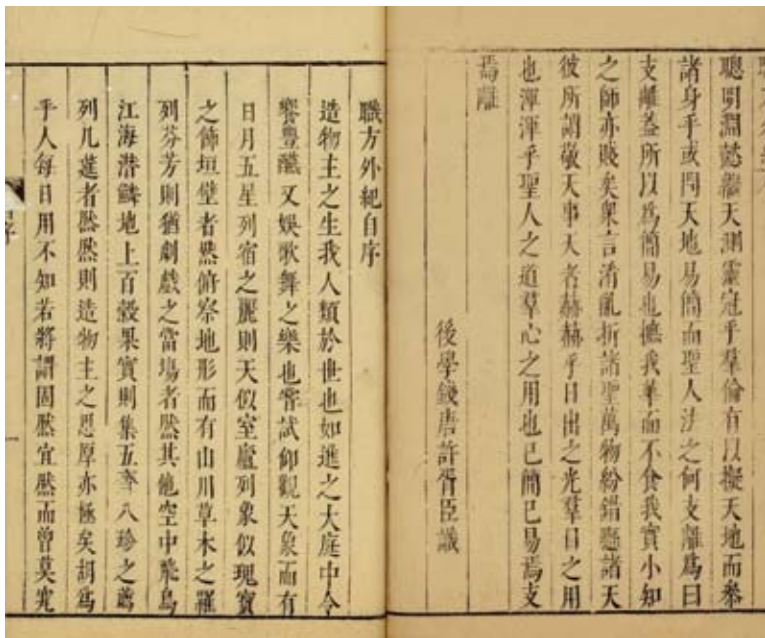 聰明淵懿繼天測靈冠乎羣倫有以擬天地而叅
諸身乎或問天地易簡而聖人法之何支離爲曰
支離葢所以爲簡易也撫我華而不食我實小知
之師亦賤矣衆言淆亂折諸聖萬物紛錯懸諸天
彼所謂敬天事天者赫赫乎日出之光羣目之用
也渾渾乎聖人之道羣心之用也已簡已易焉支
焉離
後學錢唐許胥臣識
職方外紀自序
造物主之生我人類於世也如進之大庭中令
饗豐醼又娛歌舞之樂也嘗試仰觀天象而有
日月五星列宿之麗則天似室廬列象似瑰寶
之飾垣壁者然俯察地形而有山川草木之羅
列芬芳則猶劇戲之當塲者然其他空中飛鳥
江海潜鱗地上百穀果實則集五齊八珍之薦
列几筵者然然則造物主之恩厚亦極矣胡爲
乎人每日用不知若將謂固然宜然而曾莫究